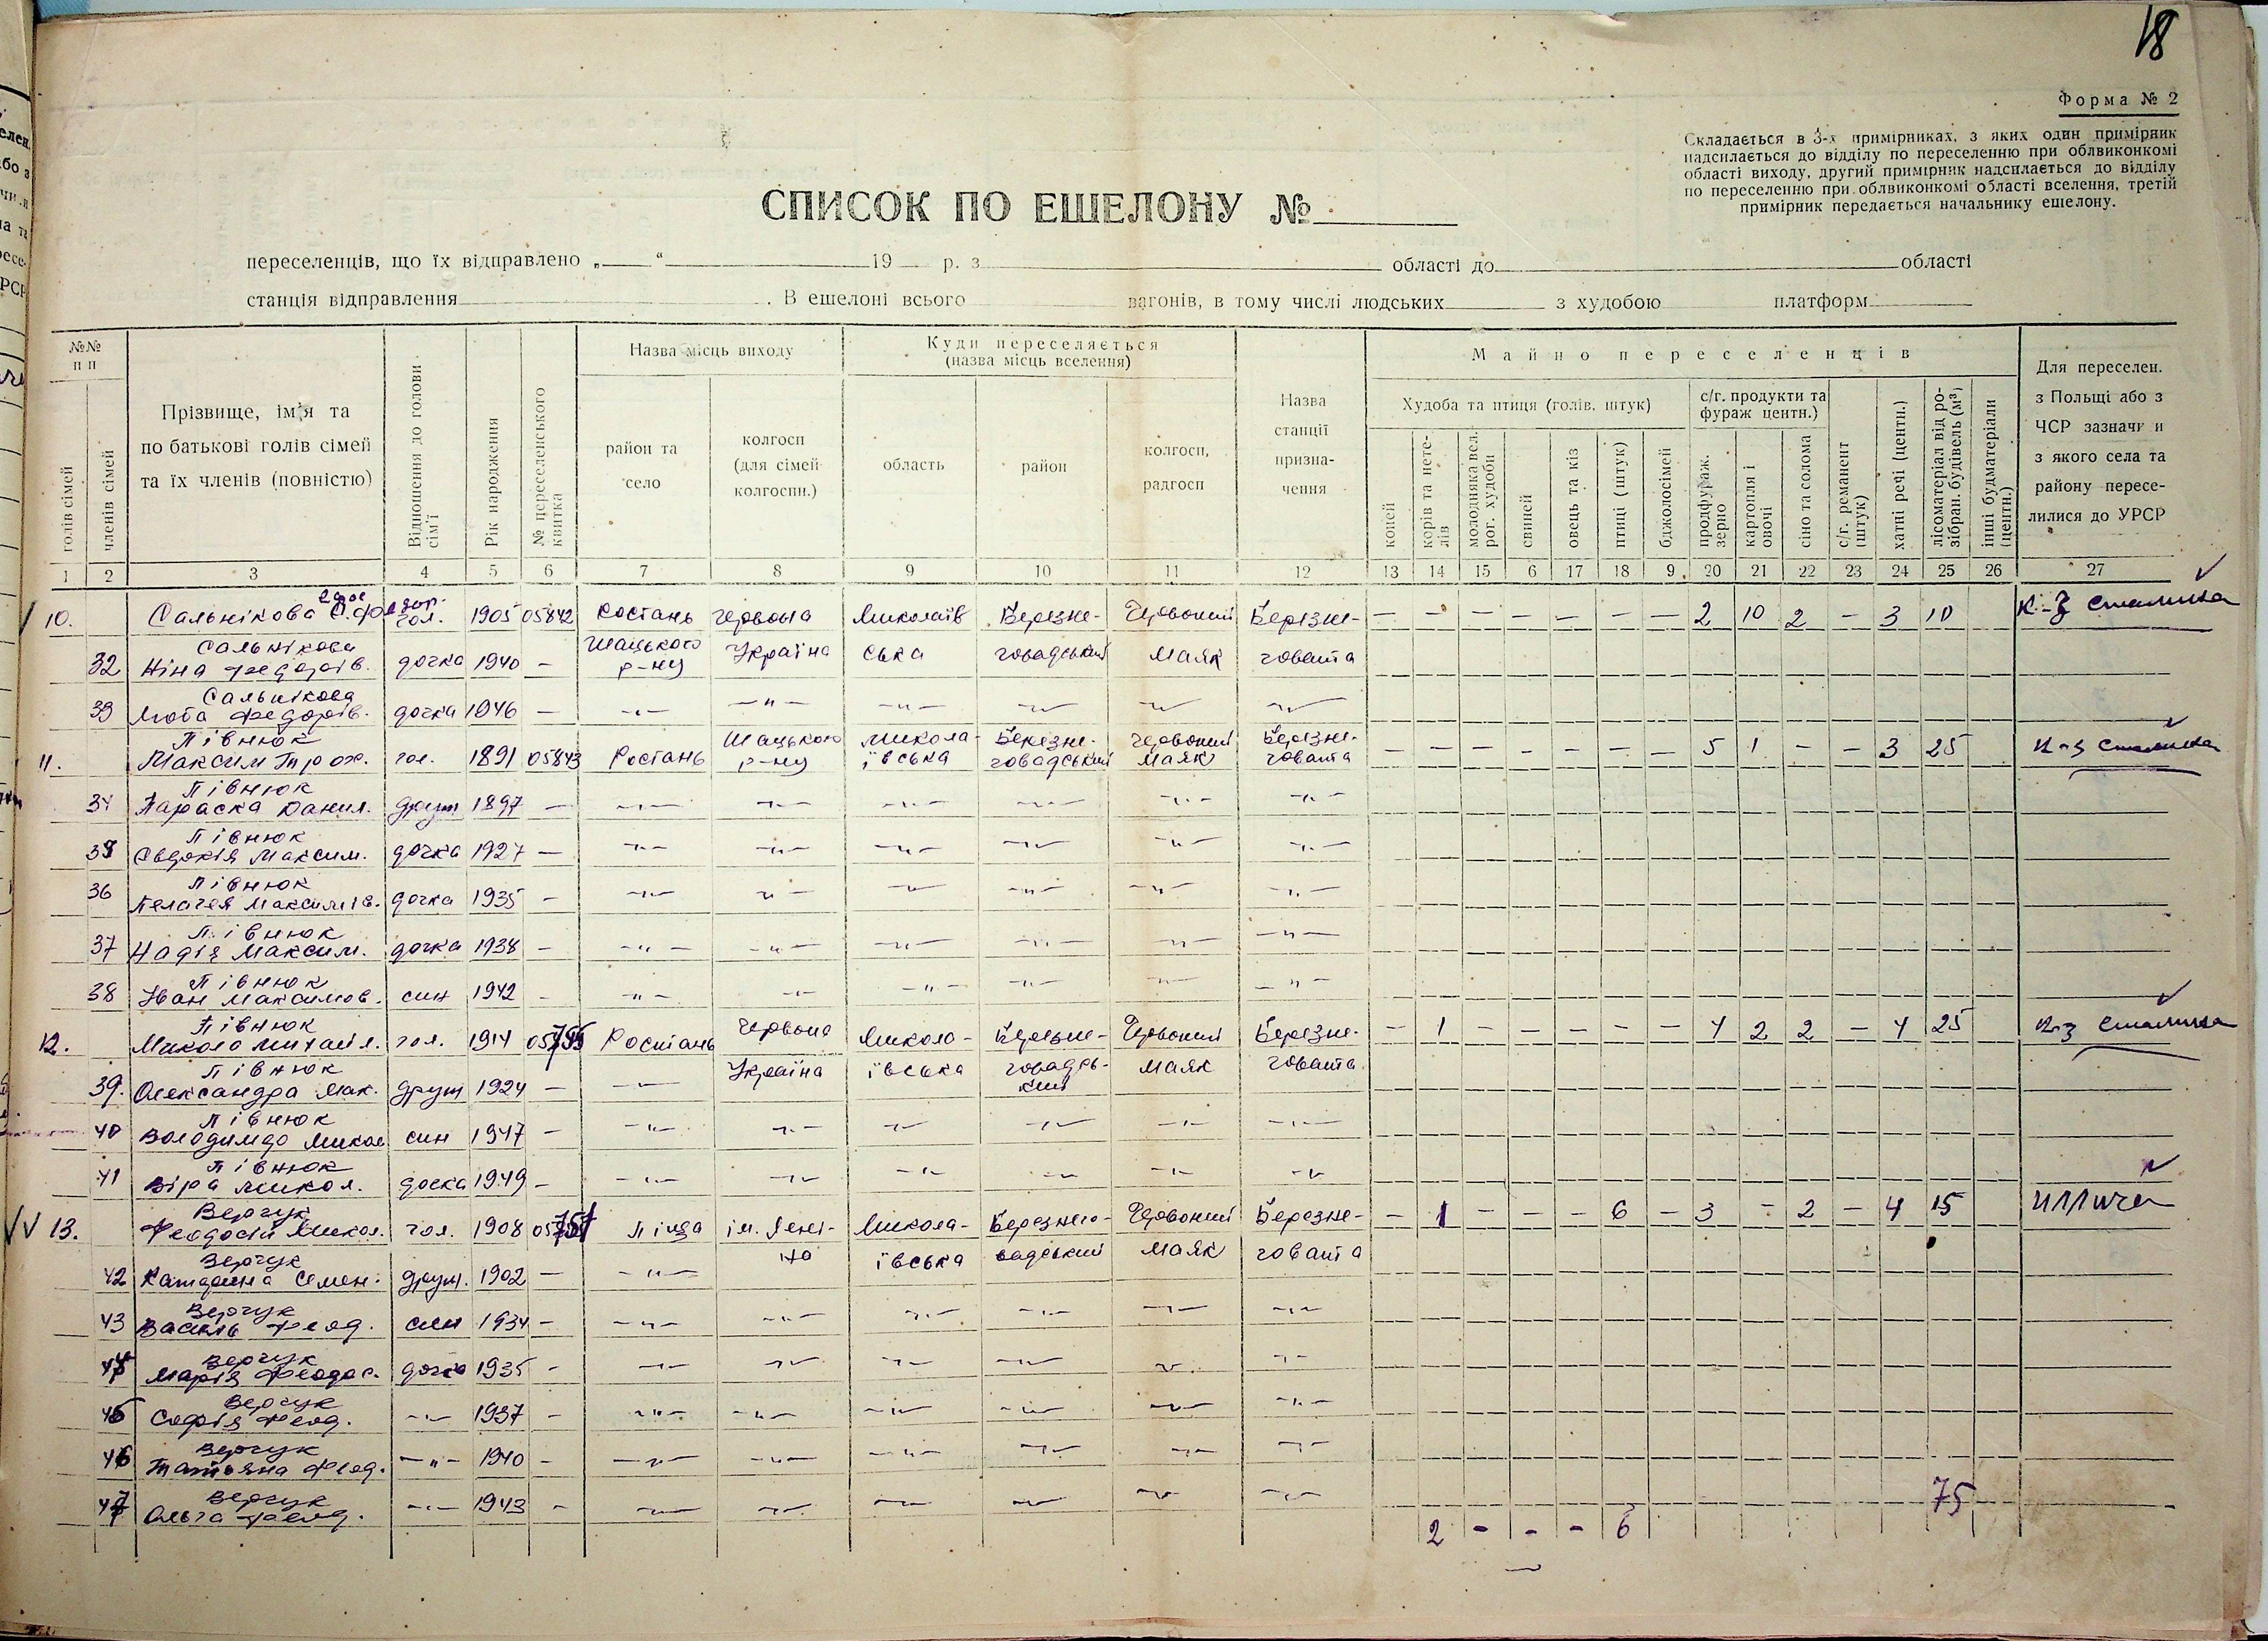 18
Форма № 2
Складається в 3-х примірниках, з яких один примірник
надсилається до відділу по переселенню при облвиконкомі
області виходу, другий примірник надсилається до відділу
по переселенню при облвиконкомі області вселення, третій
примірник передається начальнику ешелону.
СПИСОК ПО ЕШЕЛОНУ №
переселенців, що їх відправлено „ “ 19 р. з області до області
станція відправлення . В ешелоні всього вагонів, в тому числі людських з худобою платформ
№№ п п
голів сімей
членів сімей
Прізвище, ім'я та
по батькові голів сімей
та їх членів (повністю)
Відношення до голови сім'ї
Рік народження
№ переселенського квитка
Назва місць виходу
район та село
колгосп (для сімей колгоспн.)
Куди переселяється
(назва місць вселення)
область
район
колгосп, радгосп
Назва станції призна-чення
Майно переселенців
Худоба та птиця (голів, штук)
коней
корів та нете-лів
молодняка вел. рог. худоби
свиней
овець та кіз
птиці (штук)
бджолосімей
с/г. продукти та фураж центн.)
продфураж. зерно
картопля і овочі
сіно та солома
с/г. реманент (штук)
хатні речі (центн.)
лісоматеріал від ро-зібран. будівель (м³)
інші будматеріали (центн.)
Для переселен.
з Польщі або з
ЧСР зазначи и
з якого села та
району пересе-
лилися до УРСР
1 2 3 4 5 6 7 8 9 10 11 12 13 14 15 6 17 18 9 20 21 22 23 24 25 26 27
10. Сальнікова гол. 1905 05842 Ростань Червона Миколаїв Березне- Червоний Березне- — — — — — — — 2 10 2 — 3 10 К-з Сталина
Сальнікова Шацького Україна ська говадський Маяк говата
32 Ніна Федорів. дочка 1940 — р-ну
Сальнікова
33 Люба Федорів. дочка 1946 — -"- -"- -"- -"- -"- -"-
Півнюк Шацького Микола- Березне- Червоний Березне-
11. Максим Трох. гол. 1891 05843 Ростань р-ну ївська говадський Маяк говата — — — — — — — 5 1 — — 3 25 К-з Сталина
Півнюк
34 Параска Данил. друж 1897 — -"- -"- -"- -"- -"- -"-
Півнюк
35 Євдокія Максим. дочка 1927 — -"- -"- -"- -"- -"- -"-
Півнюк
36 Пелагея Максимів. дочка 1935 — -"- -"- -"- -"- -"- -"-
Півнюк
37 Надія Максим. дочка 1938 — -"- -"- -"- -"- -"- -"-
Півнюк
38 Іван Максимов. син 1942 — -"- -"- -"- -"- -"- -"-
Півнюк Червона
12. Микола Михайл. гол. 1914 05795 Ростань Микола- Березне- Червоний Березне- — 1 — — — — — 4 2 2 — 4 25 К-з Сталина
Півнюк Україна ївська говадсь-кий Маяк говата
39. Олександра Мак. друж 1924 — -"-
Півнюк
40 Володимдо Микол син 1947 — -"- -"- -"- -"- -"- -"-
Півнюк
41 Віра Микол. дочка 1949 — -"- -"- -"- -"- -"- -"-
Верчук
13. Феодосій Микол. гол. 1908 05757 Піща ім. Лені- Микола- Березнего- Червоний Березне- — 1 — — — 6 — 3 — 2 — 4 15 Иллича
Верчук на ївська вадський Маяк говата
42 Катерина Семен. друж. 1902 — -"-
Верчук
43 Василь Феод. син 1934 — -"- -"- -"- -"- -"- -"-
Верчук
44 Марія Феодос. дочка 1935 — -"- -"- -"- -"- -"- -"-
Верчук
45 Софія Феод. -"- 1937 — -"- -"- -"- -"- -"- -"-
Верчук
46 Татьяна Феод. -"- 1940 — -"- -"- -"- -"- -"- -"-
Верчук
47 Ольга Феод. -"- 1943 — -"- -"- -"- -"- -"- -"- 75
2 - - - 6